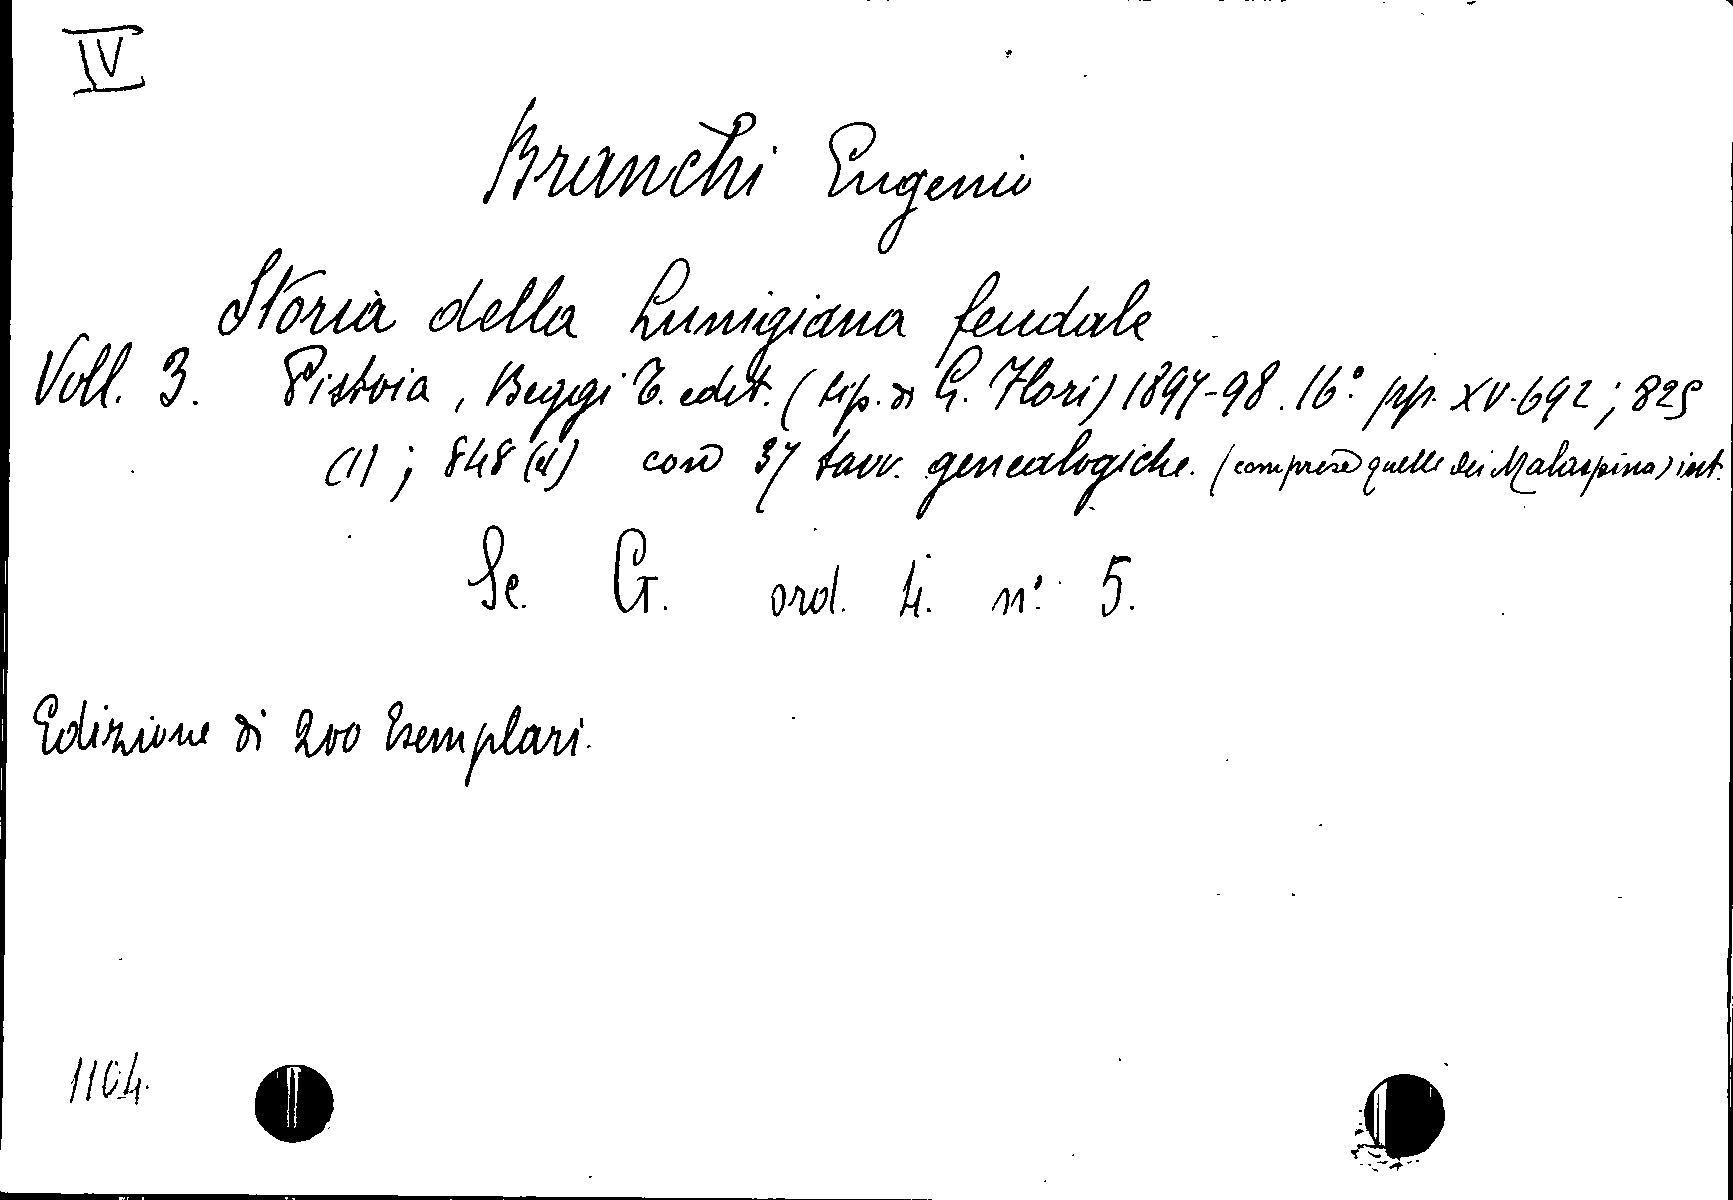 IV
Branchi Eugenio
Storia della Lunigiana feudale
Voll. 3. Pistoia, Beggi T. edit. (tip. di G. Flori) 1897-98. 16° pp. XV-692; 825
(1); 848 (2) con 37 tavv. genealogiche. (comprese quelle dei Malaspina) int.
Se. G. ord. 4. n° 5.
Edizione di 200 Esemplari.
1104.